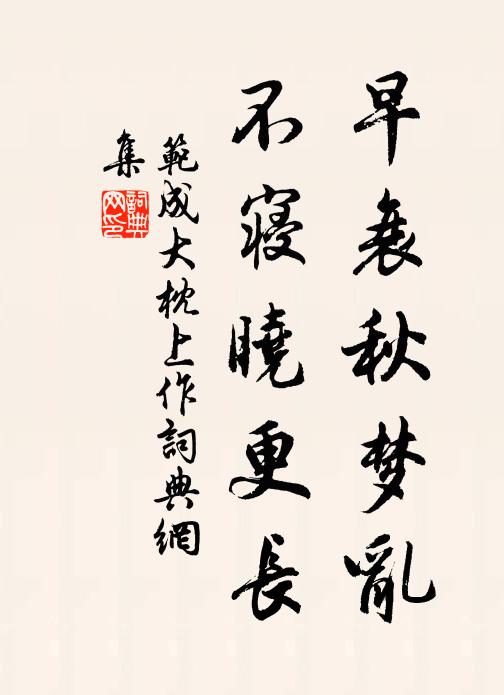 早衰秋梦亂
不寝曉更長
範成大枕上作詞典網
集
詞典
网印